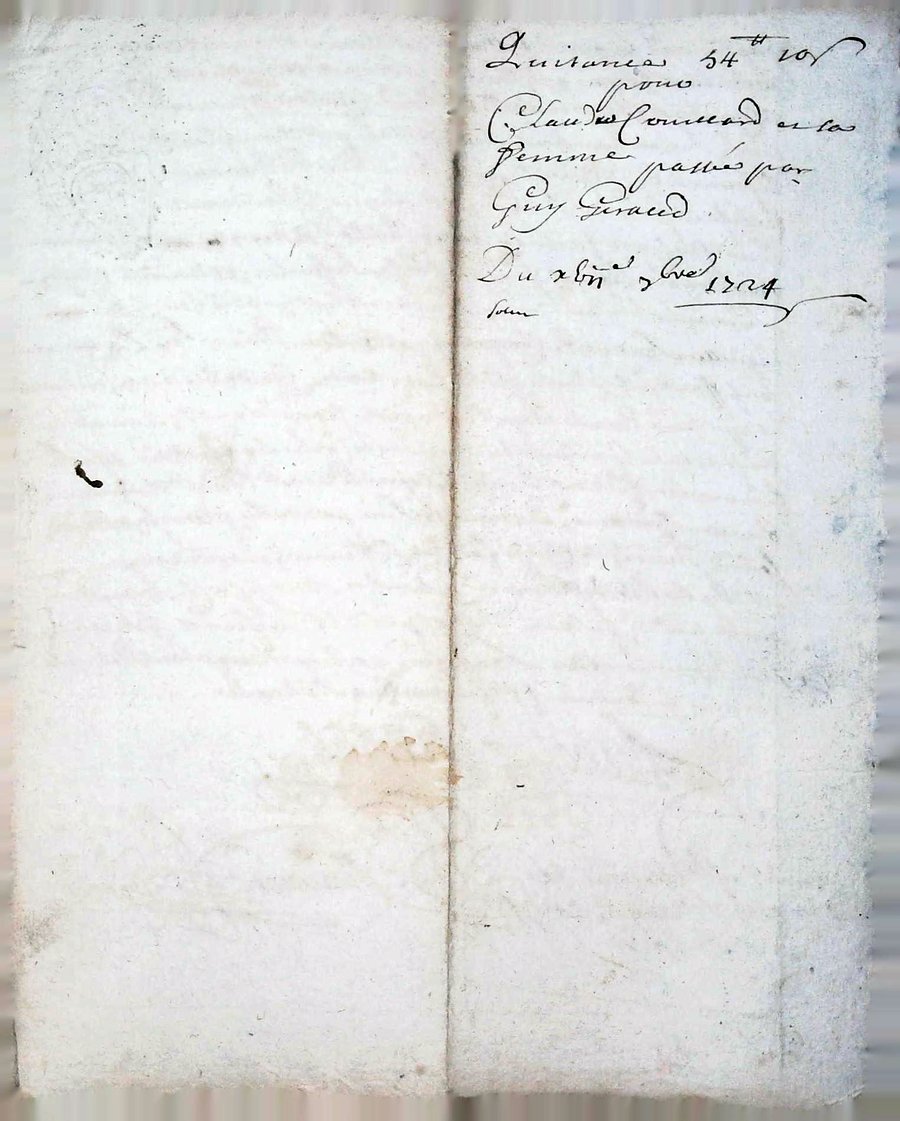 Quitance 54ᵗᵗ 10ˢ
pour
Claude Couillard et sa
femme passée par
Guy Giraud
Du xvııᵉ 7bre 1724